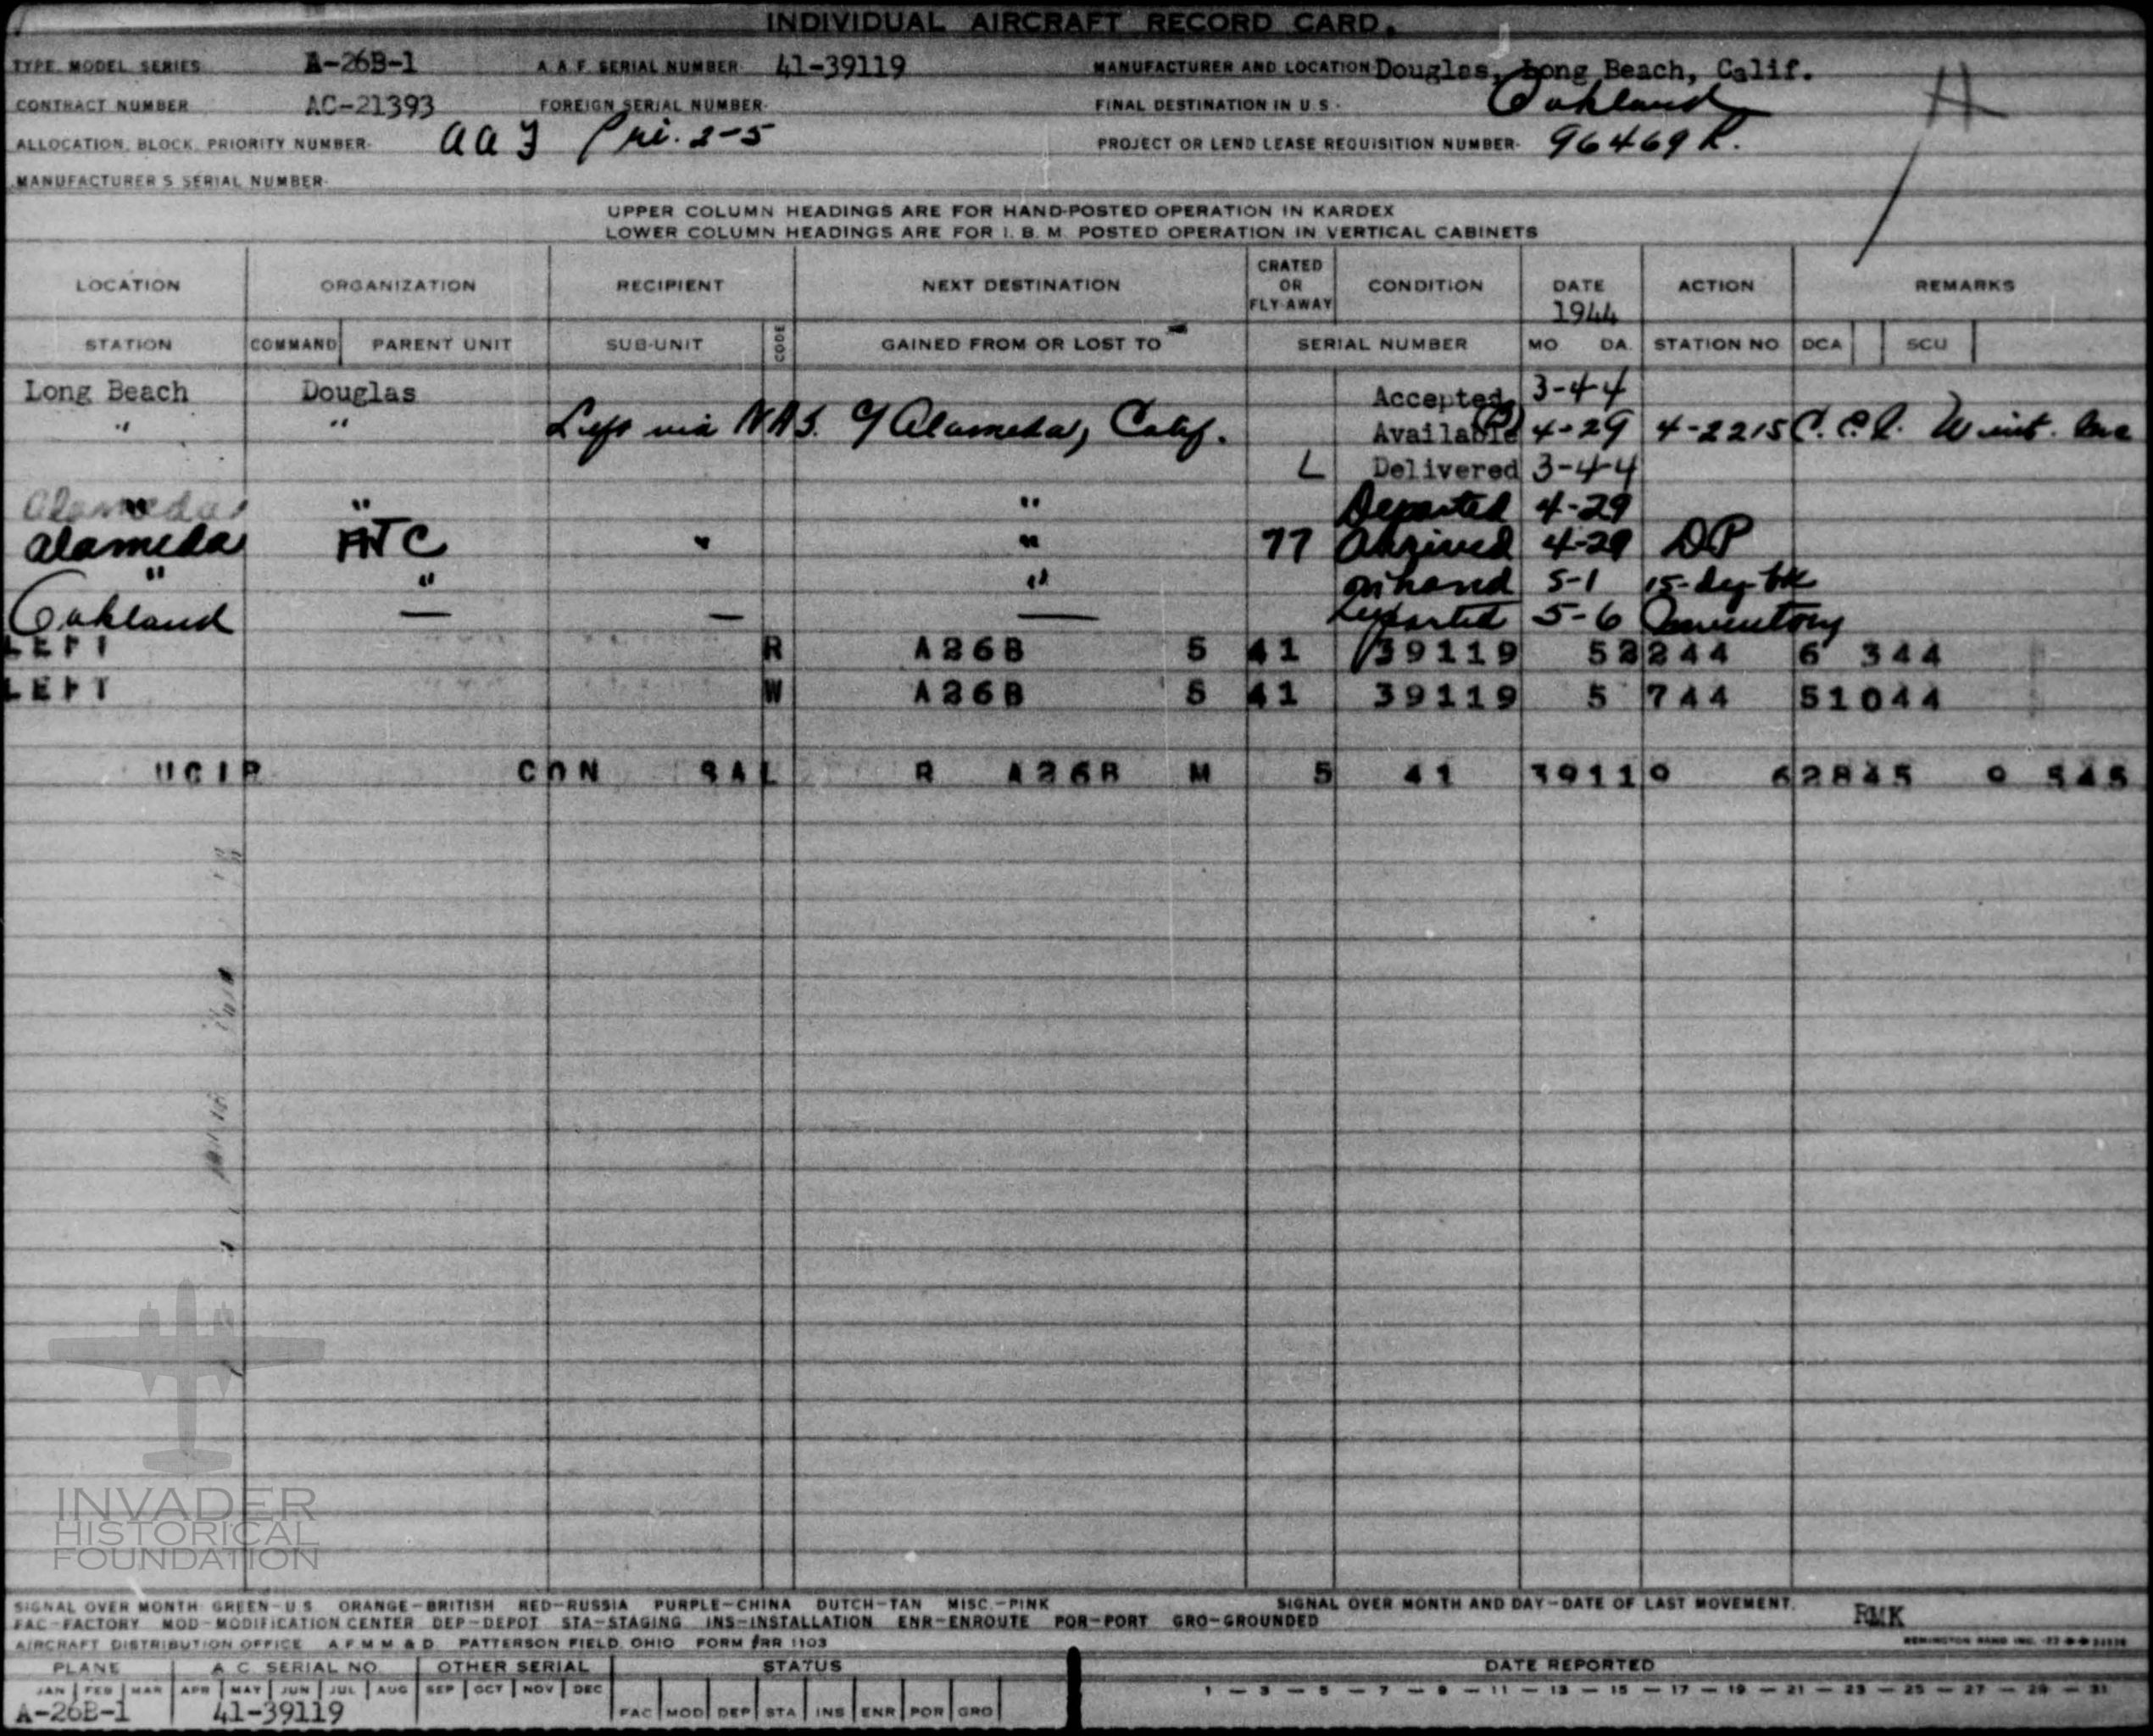 INDIVIDUAL AIRCRAFT RECORD CARD.
TYPE MODEL SERIES A-26B-1 A.A.F. SERIAL NUMBER 41-39119 MANUFACTURER AND LOCATION Douglas, Long Beach, Calif.
CONTRACT NUMBER AC-21393 FOREIGN SERIAL NUMBER- FINAL DESTINATION IN U.S.- Oakland
ALLOCATION, BLOCK, PRIORITY NUMBER- aaf Pri. 2-5 PROJECT OR LEND LEASE REQUISITION NUMBER- 96469 R.
MANUFACTURER'S SERIAL NUMBER-
UPPER COLUMN HEADINGS ARE FOR HAND-POSTED OPERATION IN KARDEX
LOWER COLUMN HEADINGS ARE FOR I. B. M. POSTED OPERATION IN VERTICAL CABINETS
LOCATION ORGANIZATION RECIPIENT NEXT DESTINATION CRATED OR FLY-AWAY CONDITION DATE 1944 ACTION REMARKS
STATION COMMAND PARENT UNIT SUB-UNIT CODE GAINED FROM OR LOST TO SERIAL NUMBER MO DA. STATION NO DCA SCU
Long Beach Douglas Accepted 3-4-4
" " Left via NAS. Alameda, Calif. Available 4-29 4-2215 Wint.
L Delivered 3-4-4
Alameda " " Departed 4-29
Alameda ATC " " 77 Arrived 4-29 DP
" " " on hand 5-1 15-day
Oakland — — — Departed 5-6 Inventory
LEFT R A26B 5 41 39119 52244 6 344
LEFT W A26B 5 41 39119 5 744 51044
CON SAL R A26B M 5 41 3911 62845 545
INVADER
HISTORICAL
FOUNDATION
SIGNAL OVER MONTH GREEN-U.S. ORANGE-BRITISH RED-RUSSIA PURPLE-CHINA DUTCH-TAN MISC.-PINK SIGNAL OVER MONTH AND DAY-DATE OF LAST MOVEMENT.
FAC-FACTORY MOD-MODIFICATION CENTER DEP-DEPOT STA-STAGING INS-INSTALLATION ENR-ENROUTE POR-PORT GRO-GROUNDED RMK
AIRCRAFT DISTRIBUTION OFFICE A.F.M.M.&D. PATTERSON FIELD, OHIO FORM RR 1103 REMINGTON RAND INC.
PLANE A C SERIAL NO. OTHER SERIAL STATUS DATE REPORTED
JAN FEB MAR APR MAY JUN JUL AUG SEP OCT NOV DEC 1 — 3 — 5 — 7 — 9 — 11 — 13 — 15 — 17 — 19 — 21 — 23 — 25 — 27 — 29 — 31
A-26B-1 41-39119 FAC MOD DEP STA INS ENR POR GRO